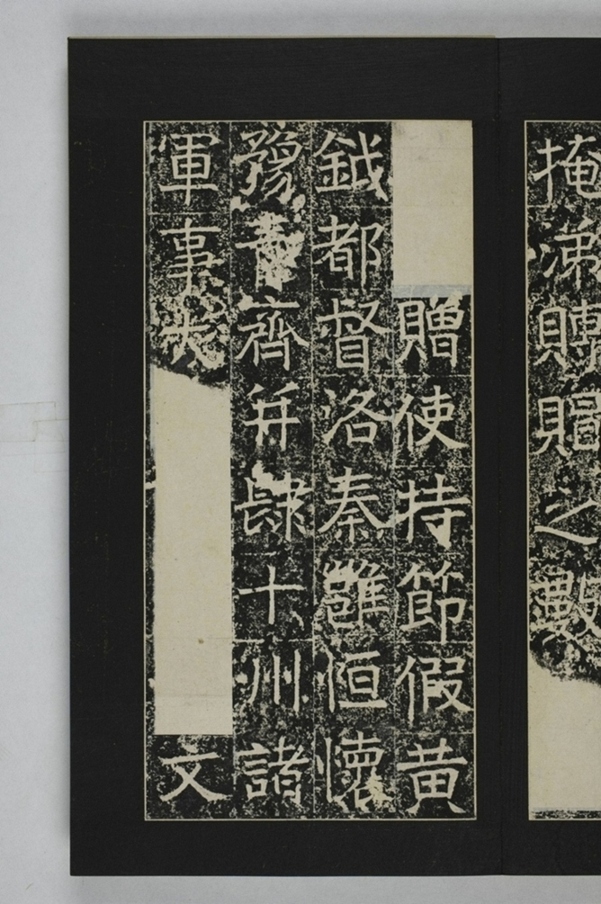 掩涕賻賵之數
贈使持節假黄
鉞都督洛秦雍恒懷
豫青齊并肆十州諸
軍事
文